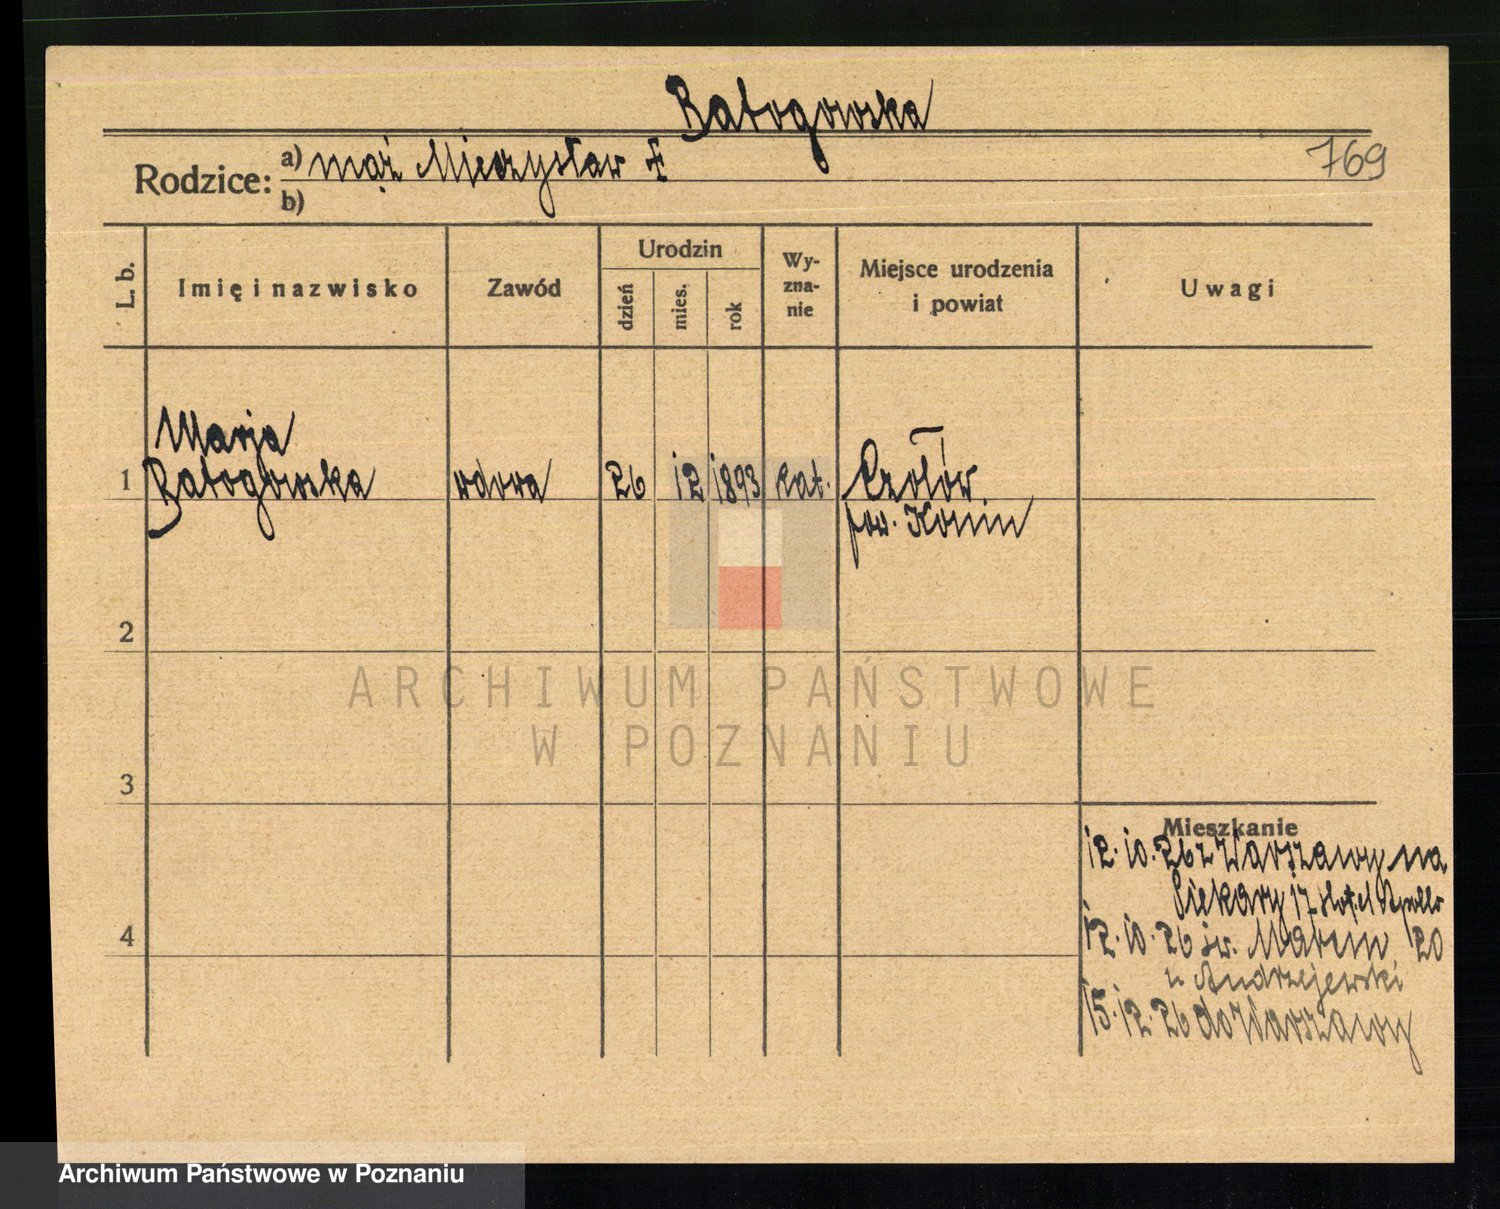 Batogowska
769
Rodzice: a) mąż Mieczysław †
b)
L. b.
Imię i nazwisko
Zawód
Urodzin
dzień
mies.
rok
Wy-
zna-
nie
Miejsce urodzenia
i powiat
Uwagi
1
Marja
Batogowska
wdowa
26
12
1893
kat.
Czołów
pow. Konin
2
3
4
Mieszkanie
12.10.26 z Warszawy na
Piekary 17 Hotel Apollo
12.10.26 św. Marcin 20
u Andrzejewski
15.12.26 do Warszawy
ARCHIWUM PAŃSTWOWE
W POZNANIU
Archiwum Państwowe w Poznaniu